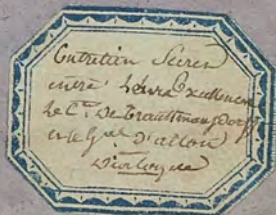 Entretien Secret
entre Leurs Excellences
le C.te De Trauttmansdorff
et le G.ral D'alton
Dialogue